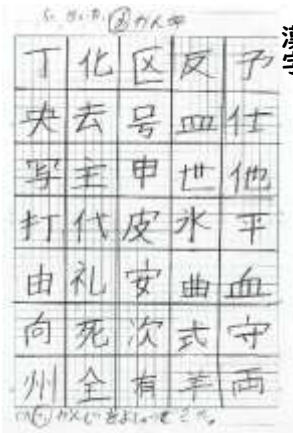 丁化区反予
央去号皿仕
写主申世他
打代皮氷平
由礼安曲血
向死次式守
州全有羊両